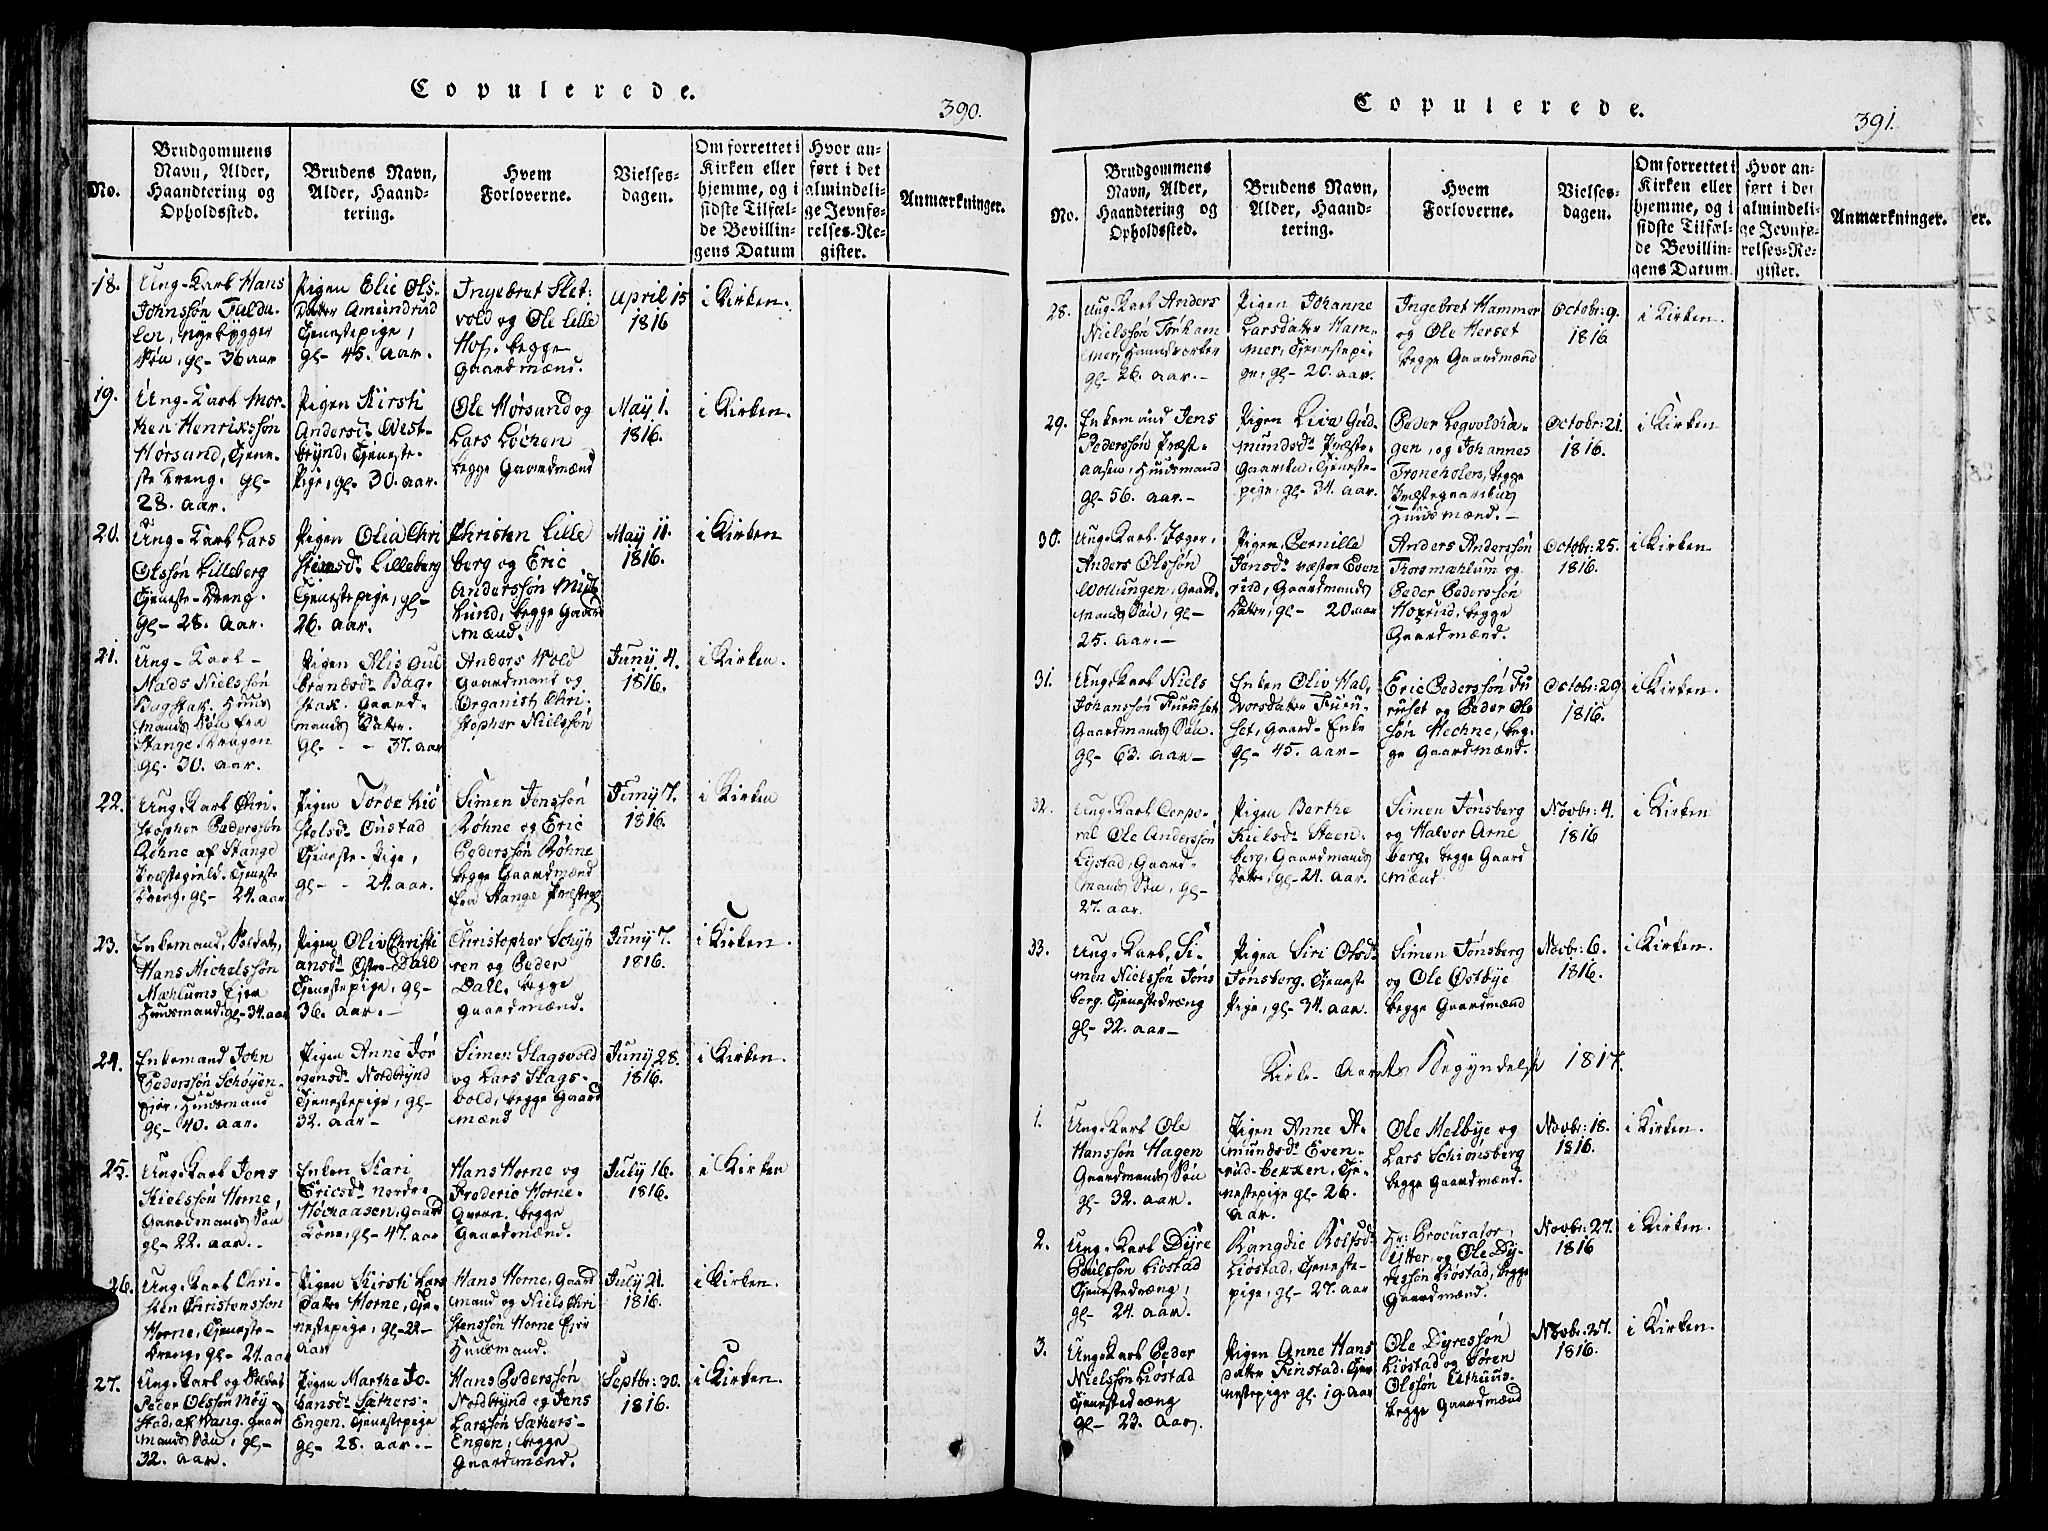 Copulerede.
390.
No.
Brudgommens
Navn, Alder,
Haandtering og
Opholdssted.
Brudens Navn,
Alder, Haand-
tering.
Hvem
Forloverne.
Vielses-
dagen.
Om forrettet i
Kirken eller
hjemme, og i
sidste Tilfæl-
de Bevillin-
gens Datum
Hvor an-
ført i det
almindeli-
ge Jevnfø-
relses-Re-
gister.
Anmærkninger.
18.
Ung-Karl Hans
Johnssøn
nyebygger
Søn, gl- 36 aar
Pigen Elie Ols-
Datter Amundrud
Tjenestepige,
gl- 45. aar.
Ingebret Slet-
vold og Ole Lille
Hof. begge
gaardmænd.
April 15
1816
i Kirken.
19.
Ung-Karl Mor-
ten Henrikssøn
Hørsand, Tjene-
ste Dreng. gl-
28. aar.
Pigen Kirsti
Andersd. West-
brynd, Tjeneste-
Pige, gl. 30. aar.
Ole Hørsand og
Lars Løchen
begge Gaardmænd
May 1.
1816.
i Kirken.
20.
Ung-Karl Lars
Olssøn Lilleberg
Tjeneste-Dreng.
gl- 28. aar.
Pigen Olia Chri
stensd. Lilleberg
Tjenestepige, gl-
26. aar.
Christen Lille
berg og Eric
Anderssøn Midt
lund, begge Gaard
mænd.
May 11.
1816.
i Kirken
21.
Ung-Karl-
Mads Nielssøn
Bagstak. Huus
mands Søn fra
Stange. Dragon
gl. 30. aar.
Pigen Alis Gul
brandsd. Bag-
stak. Gaard-
mands Datter.
gl- - - 37. aar
Anders Wold
Gaardmand og
Organist Chri-
stopher Nielssøn
Juny 4.
1816.
i Kirken.
22.
Ung-Karl Chri-
stopher Pederssøn
Røhne af Stange
Præstegield. Tjeneste
Dreng. gl- 24. aar
Pigen Torøe Kiø
stelsd. Onstad
Tjeneste-Pige,
gl- - 24. aar.
Simen Jonssøn
Røhne og Eric
Pederssøn Røhne
begge Gaardmænd
fra Stange Præstegl.
Juny 7.
1816.
i Kirken
23.
Enkemand, Soldat,
Hans Michelssøn
Mæhlums Ejer
Huusmand, gl- 34. aar
Pigen Oliv Christi
ansd. Østre-Dall
Tjenestepige, gl-
36. aar.-
Christopher Schyb
ren og Peder
Dall, begge
gaardmænd.
Juny 7.
1816.
i Kirken.
24.
Enkemand John
Pederssøn Schøyen-
ejer, Huusmand
gl- 40. aar.
Pigen Anne Jør
gensd. Nordbrynd
Tjenestepige, gl-
32. aar-
Simen Slagsvold
og Lars Slags-
vold, begge Gaard
mænd
Juny 28.
1816.
i Kirken.
25.
Ung-Karl Jens
Kielssøn Horne,
Gaardmands Søn
gl- 22. aar.-
Enken Kari
Ericsd. Nordre
gaard
Kone, gl- 47. aar
Hans Horne og
Frederic Horne-
Qvern. begge
Gaardmænd.
July 16.
1816.
i Kirken
26.
Ung-Karl Chri-
sten Christenssøn
Horne, Tjeneste-
Dreng, gl- 21. aar
Pigen Kirsti Lars
Datter Horne, Tje-
nestepige, gl- 22-
aar
Hans Horne, Gaard
mand og Niels Chri
stenssøn Horne Ejer
Huusmand.
July 21.
1816.
i Kirken.
27.
Ung-Karl og Soldat
Peder Olssøn Møy
stad, af Vang. gaard
mands Søn, gl-
32. aar.
Pigen Marthe Jo-
hansd. Sæthers-
Engen. Tjenestepige
gl- 28. aar.-
Hans Pederssøn
Nordbrynd og Jens
Larssøn Sæthers-
Engen, begge
gaardmænd.
Septbr: 30.
1816.
i Kirken.
Copulerede.
391.
No.
Brudgommens
Navn, Alder,
Haandtering og
Opholdssted.
Brudens Navn,
Alder, Haand-
tering.
Hvem
Forloverne.
Vielses-
dagen.
Om forrettet i
Kirken eller
hjemme, og i
sidste Tilfæl-
de Bevillin-
gens Datum.
Hvor an-
ført i det
almindeli-
ge Jevnfø-
relses-Re-
gister.
Anmærkninger.
28.
Ung-Karl Anders
Nielssøn Torham
mer, Haandverker
gl- 26. aar.-
Pigen Johanne
Larsdatter Ham-
mer, Tjenestepi-
ge, gl- 20. aar.
Ingebret Hammer
og Ole Herset
begge Gaardmænd
Octobr: 9.
1816
i Kirken.
29.
Enkemand Jens
Pederssøn Præst-
aasen, Huusmand
gl- 56. aar.-
Pigen Lisa Gud-
mundsd. Præste-
Gaarden, Tjeneste-
pige, gl- 34. aar.
Peder Legvoldha-
gen, og Johannes
Troneholen, begge
Præstegaardens
Huusmænd.-
Octobr: 21.
1816.
i Kirken
30.
Ung-Karl. Jæger,
Anders Olssøn
Wollungen, Gaard
mands Søn, gl-
25. aar.-
Pigen, Pernille
Jensd. Væstre Even
rud, Gaardmands
Datter, gl- 20 aar
Anders Anderssøn
Thorsmæhlum og
Peder Pederssøn
begge
Gaardmænd.
Octobr: 25.
1816.
i Kirken
31.
Ung-Karl Niels
Johanssøn Furuset
Gaardmands Søn.
gl- 63. aar-
Enken Oliv Hal-
vorsdatter Furu-
set, Gaard-Enke
gl- 45. aar-
Eric Pederssøn Fu
ruset og Peder Ole
søn Hechne, beg-
ge Gaardmænd.
Octobr: 29
1816.
i Kirken.
32.
Ung-Karl Corpo-
ral Ole Anderssøn
Lystad, Gaard-
mands Søn, gl-
27. aar.
Pigen Berthe
Kielsd. Steen-
berg, Gaardmands
Datter, gl- 24. aar.
Simen Tønsberg
og Halvor Arne
berg, begge Gaard
mænd
Novbr: 4.
1816
i Kirken
33.
Ung-Karl, Si-
men Nielssøn Tøns
berg. Tjenestedræng
gl- 32. aar-
Pigen Siri Olsd.
Tønsberg. Tjeneste
Pige, gl- 34. aar.
Simen Tønsberg
og Ole Østbye
begge Gaardmænd
Novbr: 6.
1816.
i Kirken.
Kirke-Aarets Begyndelse 1817.
1.
Ung-Karl Ole
Hanssøn Hagen
Gaardmands Søn
gl- 32. aar.
Pigen Anne A-
mundsd. Even-
rud-bakken, Tje-
nestepige gl- 26.
aar.
Ole Melbye og
Lars Schiønsberg
begge Gaardmænd.
Novbr: 18.
1816.
i Kirken.
2.
Ung-Karl Dyre
Poulssøn Liøstad
Tjenestedræng,
gl- 24. aar.
Rangdie Rolfsd.
Liøstad, Tjeneste-
pige, gl- 27. aar
Hr: Procurator
Utter og Ole Dy-
ressøn Liøstad, begge
Gaardmænd.
Novbr: 27.
1816
i Kirken.
3.
Ung-Karl Peder
Nielssøn Liøstad
Tjenestedræng
gl- 23. Aar.
Pigen Anne Hans
datter Finstad. Tje-
nestepige gl. 19 aar
Ole Dyressøn
Liøstad og Søren
Olssøn Uthuus.
begge Gaardmænd
Novbr: 27.
1816.
i Kirken.